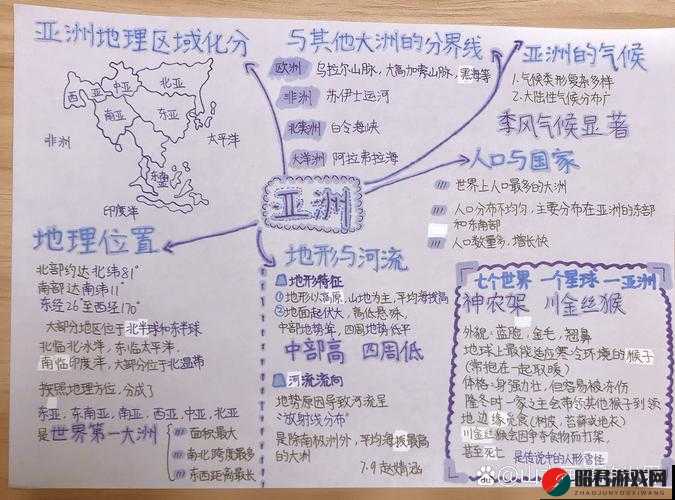 亚洲地理区域化分
西亚
中亚
北亚
南亚
东亚
东南亚
非洲
太平洋
印度洋
与其他大洲的分界线
欧洲 乌拉尔山脉,大高加索山脉,黑海等
非洲 苏伊士运河
北美洲 白令海峡
大洋洲 阿拉弗拉海
亚洲的气候
1.气候类形复杂多样
2.大陆性气候分布广
季风气候显著
亚洲
人口与国家
世界上人口最多的大洲
人口分布不均匀,主要分布在亚洲的东部
和东南部
人口数量多,增长快
地理位置
北部约达北纬81°
南部达南纬11°
东经26°至西经170°
大部分地区位于北半球和东半球
北临北冰洋,东临太平洋,
南临印度洋,大部分位于北温带
按照地理方位,分成了
东亚,东南亚,南亚,西亚,中亚,北亚
是世界第一大洲
面积最大
南北跨度最多
东西距离最长
地形与河流
地形特征
①地形以高原,山地为主,平均海拔高
②地面起伏大,高低悬殊,
中部地势高,四周地势低平
中部高 四周低
河流流向
地势原因导致河流呈
"放射线分布"
是除南极洲外,平均海拔最高
的大洲
7.9
七个世界 一个星球 —亚洲
神农架 川金丝猴
外貌:蓝脸,金毛,翘鼻
地球上最能适应寒冷环境的猴子
(常抱在一起取暖)
体格:身强力壮,但容易被冻伤
隆冬时一家之主会带领其他猴子到领
地边缘觅食(树皮,苔藓或地衣)
川金丝猴会因争夺食物而打架,
甚至死亡
是传说中的人形雪怪
昭君游戏网
ZHAOJUNYOUXIWANG